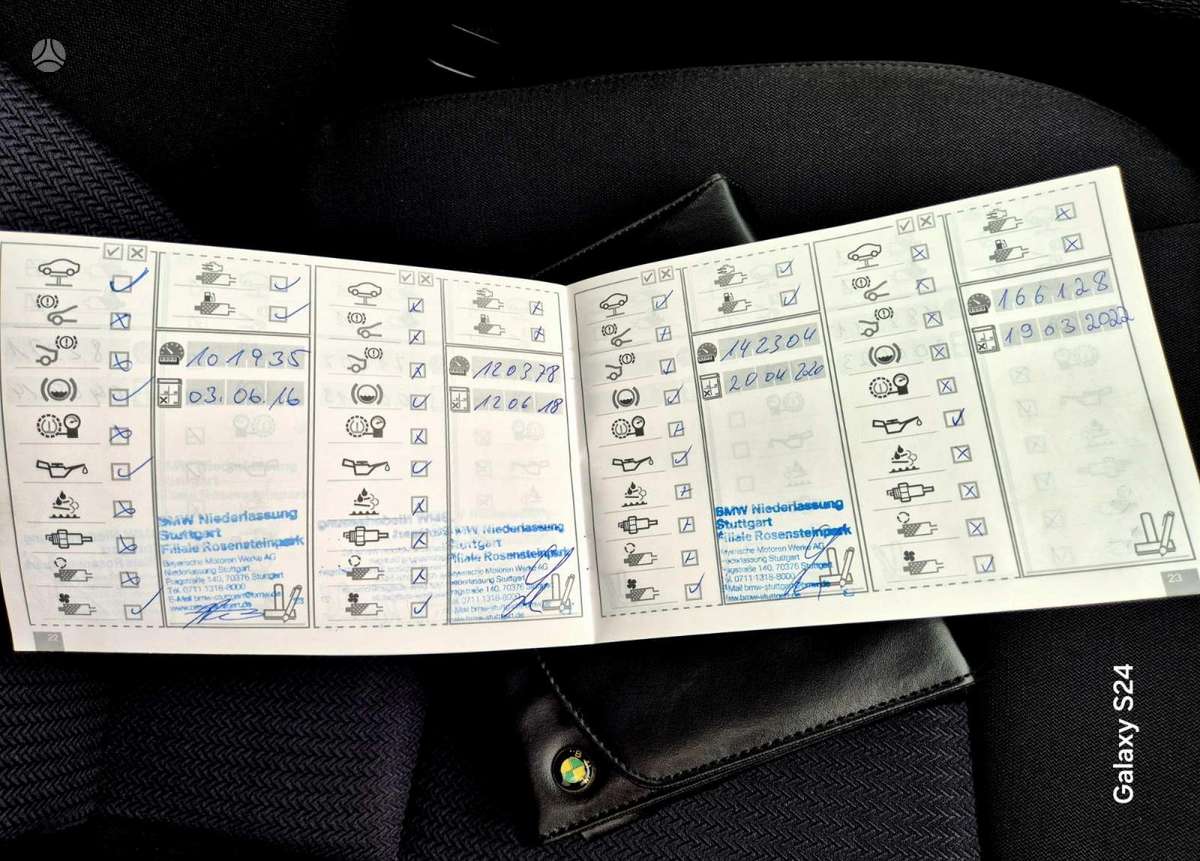 101935
03.06.16
BMW Niederlassung
Stuttgart
Filiale Rosensteinpark
Bayerische Motoren Werke AG
Niederlassung Stuttgart
Pragstraße 140, 70376 Stuttgart
Tel. 0711-1318-8000
22
120378
12 06 18
BMW Niederlassung
Stuttgart
Filiale Rosensteinpark
Bayerische Motoren Werke AG
Niederlassung Stuttgart
Pragstraße 140, 70376 Stuttgart
Tel. 0711-1318-8000
142304
20 04 2020
BMW Niederlassung
Stuttgart
Filiale Rosensteinpark
Bayerische Motoren Werke AG
Niederlassung Stuttgart
Pragstraße 140, 70376 Stuttgart
Tel. 0711-1318-8000
166128
19 03 2022
23
Galaxy S24